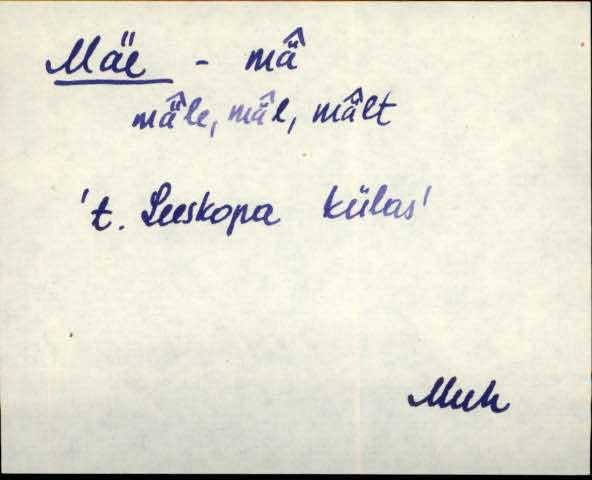 Mäe - mä̂
mä̂le, mä̂l, mä̂lt
't. Leeskopa külas'
Muh